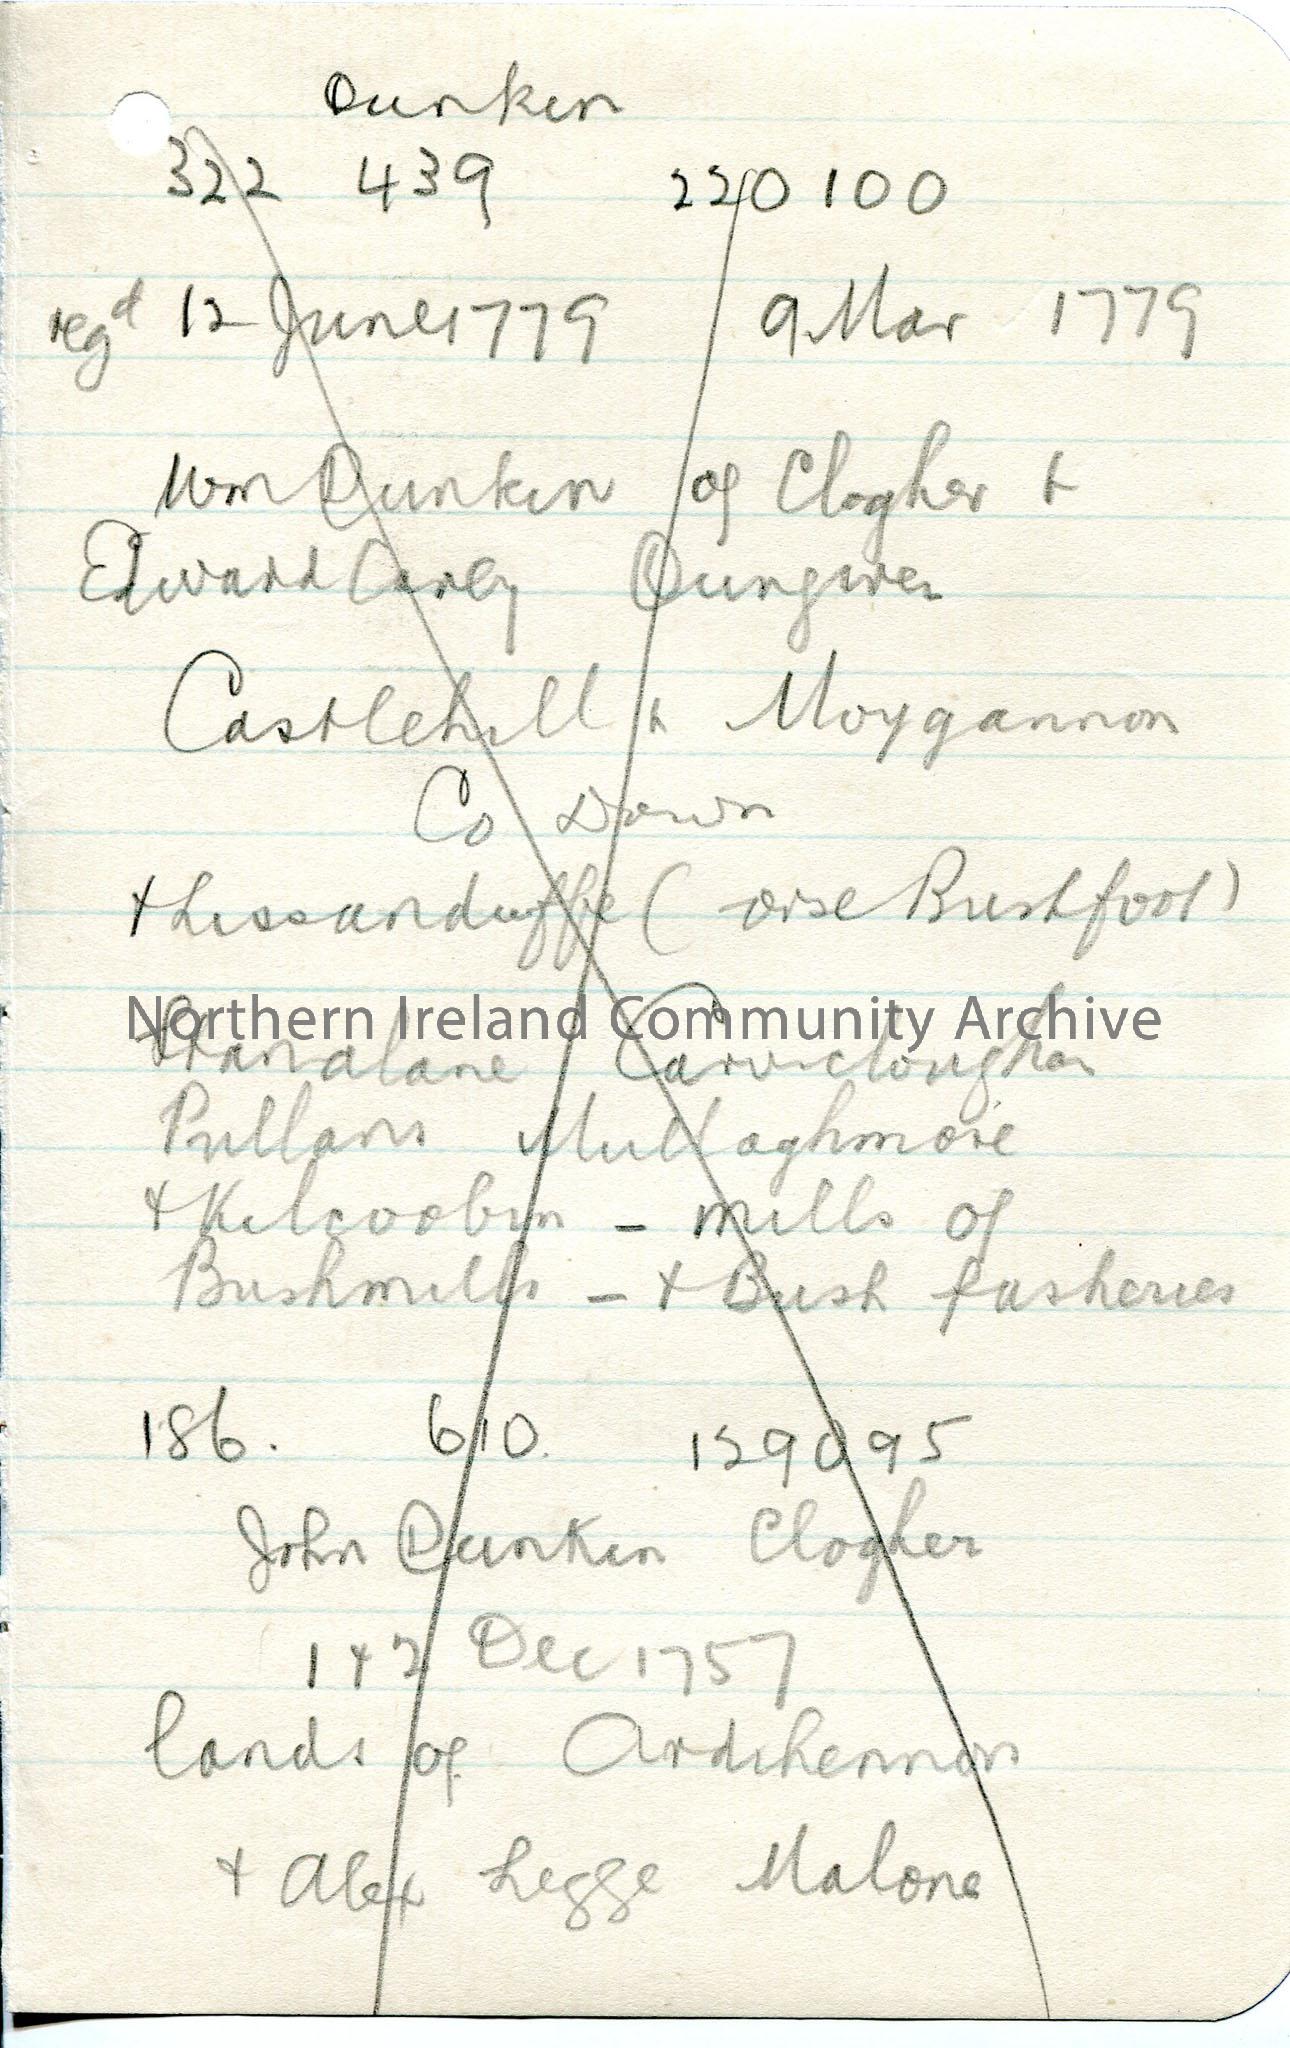 Dunkin
322 439 220 100
regd 12 June 1779 9 Mar 1779
Wm Dunkin of Clogher +
Edward Carey Dungiven
Castlehill + Moygannon
Co Down
+ Lissanduffe ( orse Bushfoot)
Northern Ireland Community Archive
+ Carncloughan
Pullans Mullaghmore
+ Kilcoobin - mills of
Bushmills - + Bush fisheries
186. 610. 129095
John Dunkin Clogher
1 + 2 Dec 1757
lands of
+ Alex Legge Malone